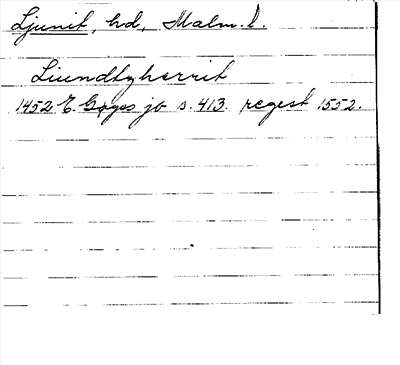 Ljunit, hd, Malm. l.
Liundbyherrit
1452 E. Gøyes jb s. 413. regest 1552.